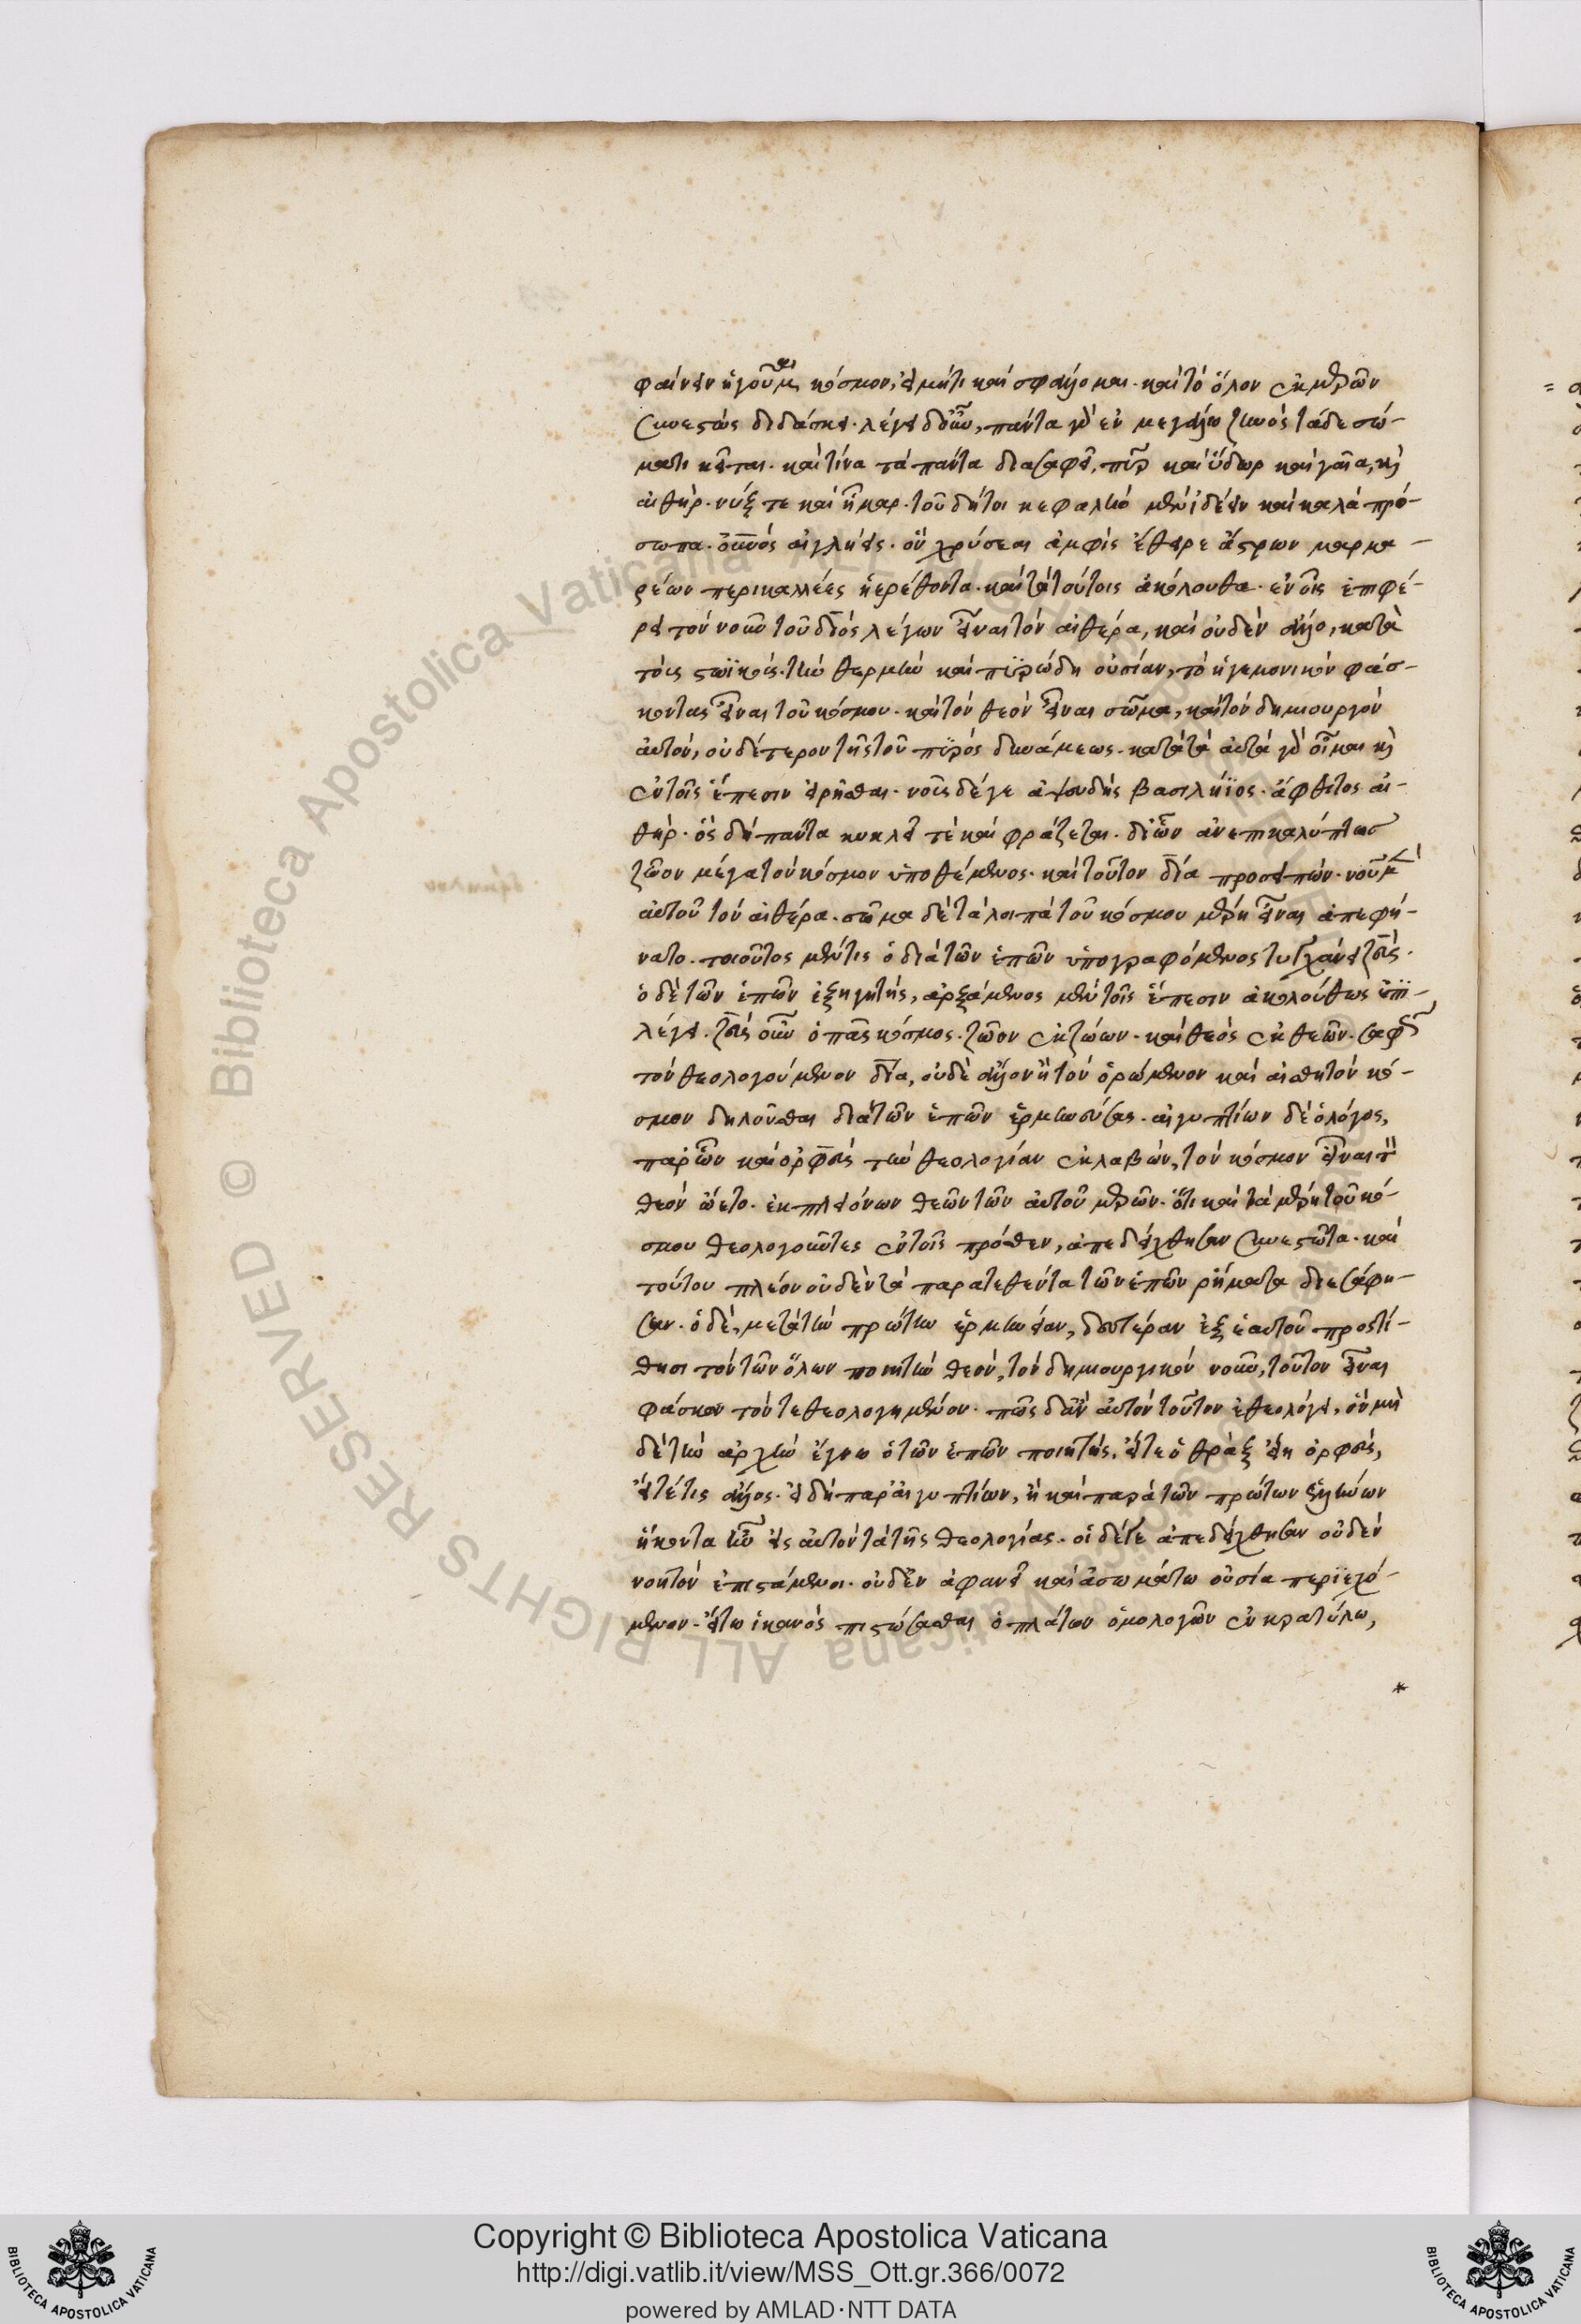 φαίνειν ἡγοῦμαι κόσμον, εἰ μήτι καὶ σφάλλομαι. καὶ τὸ ὅλον ἐκ μερῶν
συνεστὼς διδάσκει. λέγει δ᾽ οὖν, πάντα γὰρ ἐν μεγάλω ζηνὸς τάδε σώ-
ματι κεῖται. καὶ τίνα τὰ πάντα διασαφεῖ, πῦρ καὶ ὕδωρ καὶ γαῖα, καὶ
αἰθήρ. νύξ τε καὶ ἦμαρ. τοῦ δή τοι κεφαλὴ μὲν ἰδεῖν καὶ καλὰ πρό-
σωπα. οὐρανὸς αἰγλήεις. ὃν χρύσεαι ἀμφὶς ἔθειραι ἄστρων μαρμα-
ρέων περικαλλέες ἠερέθονται. καὶ τὰ τούτοις ἀκόλουθα. ἐν οἷς ἐπιφέ-
ρει τὸν νοῦν τοῦ διὸς λέγων εἶναι τὸν αἰθέρα, καὶ οὐδὲν ἄλλο, κατὰ
τοὺς στωϊκοὺς. τὴν θερμὴν καὶ πυρώδη οὐσίαν, τὸ ἡγεμονικὸν φάσ-
κοντας εἶναι τοῦ κόσμου. καὶ τὸν θεὸν εἶναι σῶμα, καὶ τὸν δημιουργὸν
αὐτὸν, οὐδέτερον τῆς τοῦ πυρὸς δυνάμεως. κατὰ τὰ αὐτὰ γὰρ οἶμαι καὶ
ἐν τοῖς ἔπεσιν εἰρῆσθαι. νοῦς δέ γε ἀψευδὴς βασιλήϊος. ἄφθιτος αἰ-
θήρ. ὃς δὴ πάντα κυκλεῖ τὲ καὶ φράζεται. δι᾽ ὧν ἀνεπικαλύπτως
ζῶον μέγα τὸν κόσμον ὑποθέμενος. καὶ τοῦτον δία προσειπών. νοῦν μὲν
αὐτοῦ τὸν αἰθέρα. σῶμα δὲ τὰ λοιπὰ τοῦ κόσμου μέρη εἶναι ἀπεφή-
νατο. τοιοῦτος μέν τις ὁ διὰ τῶν ἐπῶν ὑπογραφόμενος τυγχάνει ζεύς.
ὁ δὲ τῶν ἐπῶν ἐξηγητὴς, ἀρξάμενος μὲν τοῖς ἔπεσιν ἀκολούθως ἐπι-
λέγει. ζεὺς οὖν ὁ πᾶς κόσμος. ζῶον ἐκ ζώων. καὶ θεὸς ἐκ θεῶν. σαφῶς
τὸν θεολογούμενον δία, οὐδὲ ἄλλον ἢ τὸν ὁρώμενον καὶ αἰσθητὸν κό-
σμον δηλοῦσθαι διὰ τῶν ἐπῶν ἑρμηνεύσας. αἰγυπτίων δὲ ὁ λόγος,
παρ᾽ ὧν καὶ ὀρφεὺς τὴν θεολογίαν ἐκλαβὼν, τὸν κόσμον εἶναι τὸν
θεὸν ὤετο. ἐκ πλειόνων θεῶν τῶν αὐτοῦ μερῶν. ὅτι καὶ τὰ μέρη τοῦ κό-
σμου θεολογοῦντες ἐν τοῖς πρόσθεν, ἀπεδείχθησαν συνεστῶτα. καὶ
τούτου πλέον οὐδὲν τὰ παρατεθέντα τῶν ἐπῶν ῥήματα διεσάφη-
σαν. ὁ δὲ, μετὰ τὴν πρώτην ἑρμηνείαν, δευτέραν ἐξ ἑαυτοῦ προστί-
θησι τὸν τῶν ὅλων ποιητὴν θεὸν, τὸν δημιουργικὸν νοῦν, τοῦτον εἶναι
φάσκων τὸν τεθεολογημένον. πῶς δ᾽ ἂν αὐτὸν τοῦτον ἐθεολόγει, ὃν μὴ
δὲ τὴν ἀρχὴν ἔγνω ὁ τῶν ἐπῶν ποιητὴς. εἴτε ὁ θρὰξ εἴη ὀρφεὺς,
εἴτέ τις ἄλλος. εἰ δὴ παρ᾽ αἰγυπτίων, ἢ καὶ παρὰ τῶν πρώτων ἑλλήνων
ἥκοντα ἦν εἰς αὐτὸν τὰ τῆς θεολογίας. οἱ δέ γε ἀπεδείχθησαν οὐδὲν
νοητὸν ἐπιστάμενοι. οὐδ᾽ ἐν ἀφανεῖ καὶ ἀσωμάτω οὐσία περιεχό-
μενον. εἴτω ἱκανὸς πιστώσασθαι ὁ πλάτων ὁμολογῶν ἐν κρατύλω,
Copyright © Biblioteca Apostolica Vaticana
http://digi.vatlib.it/view/MSS_Ott.gr.366/0072
powered by AMLAD·NTT DATA